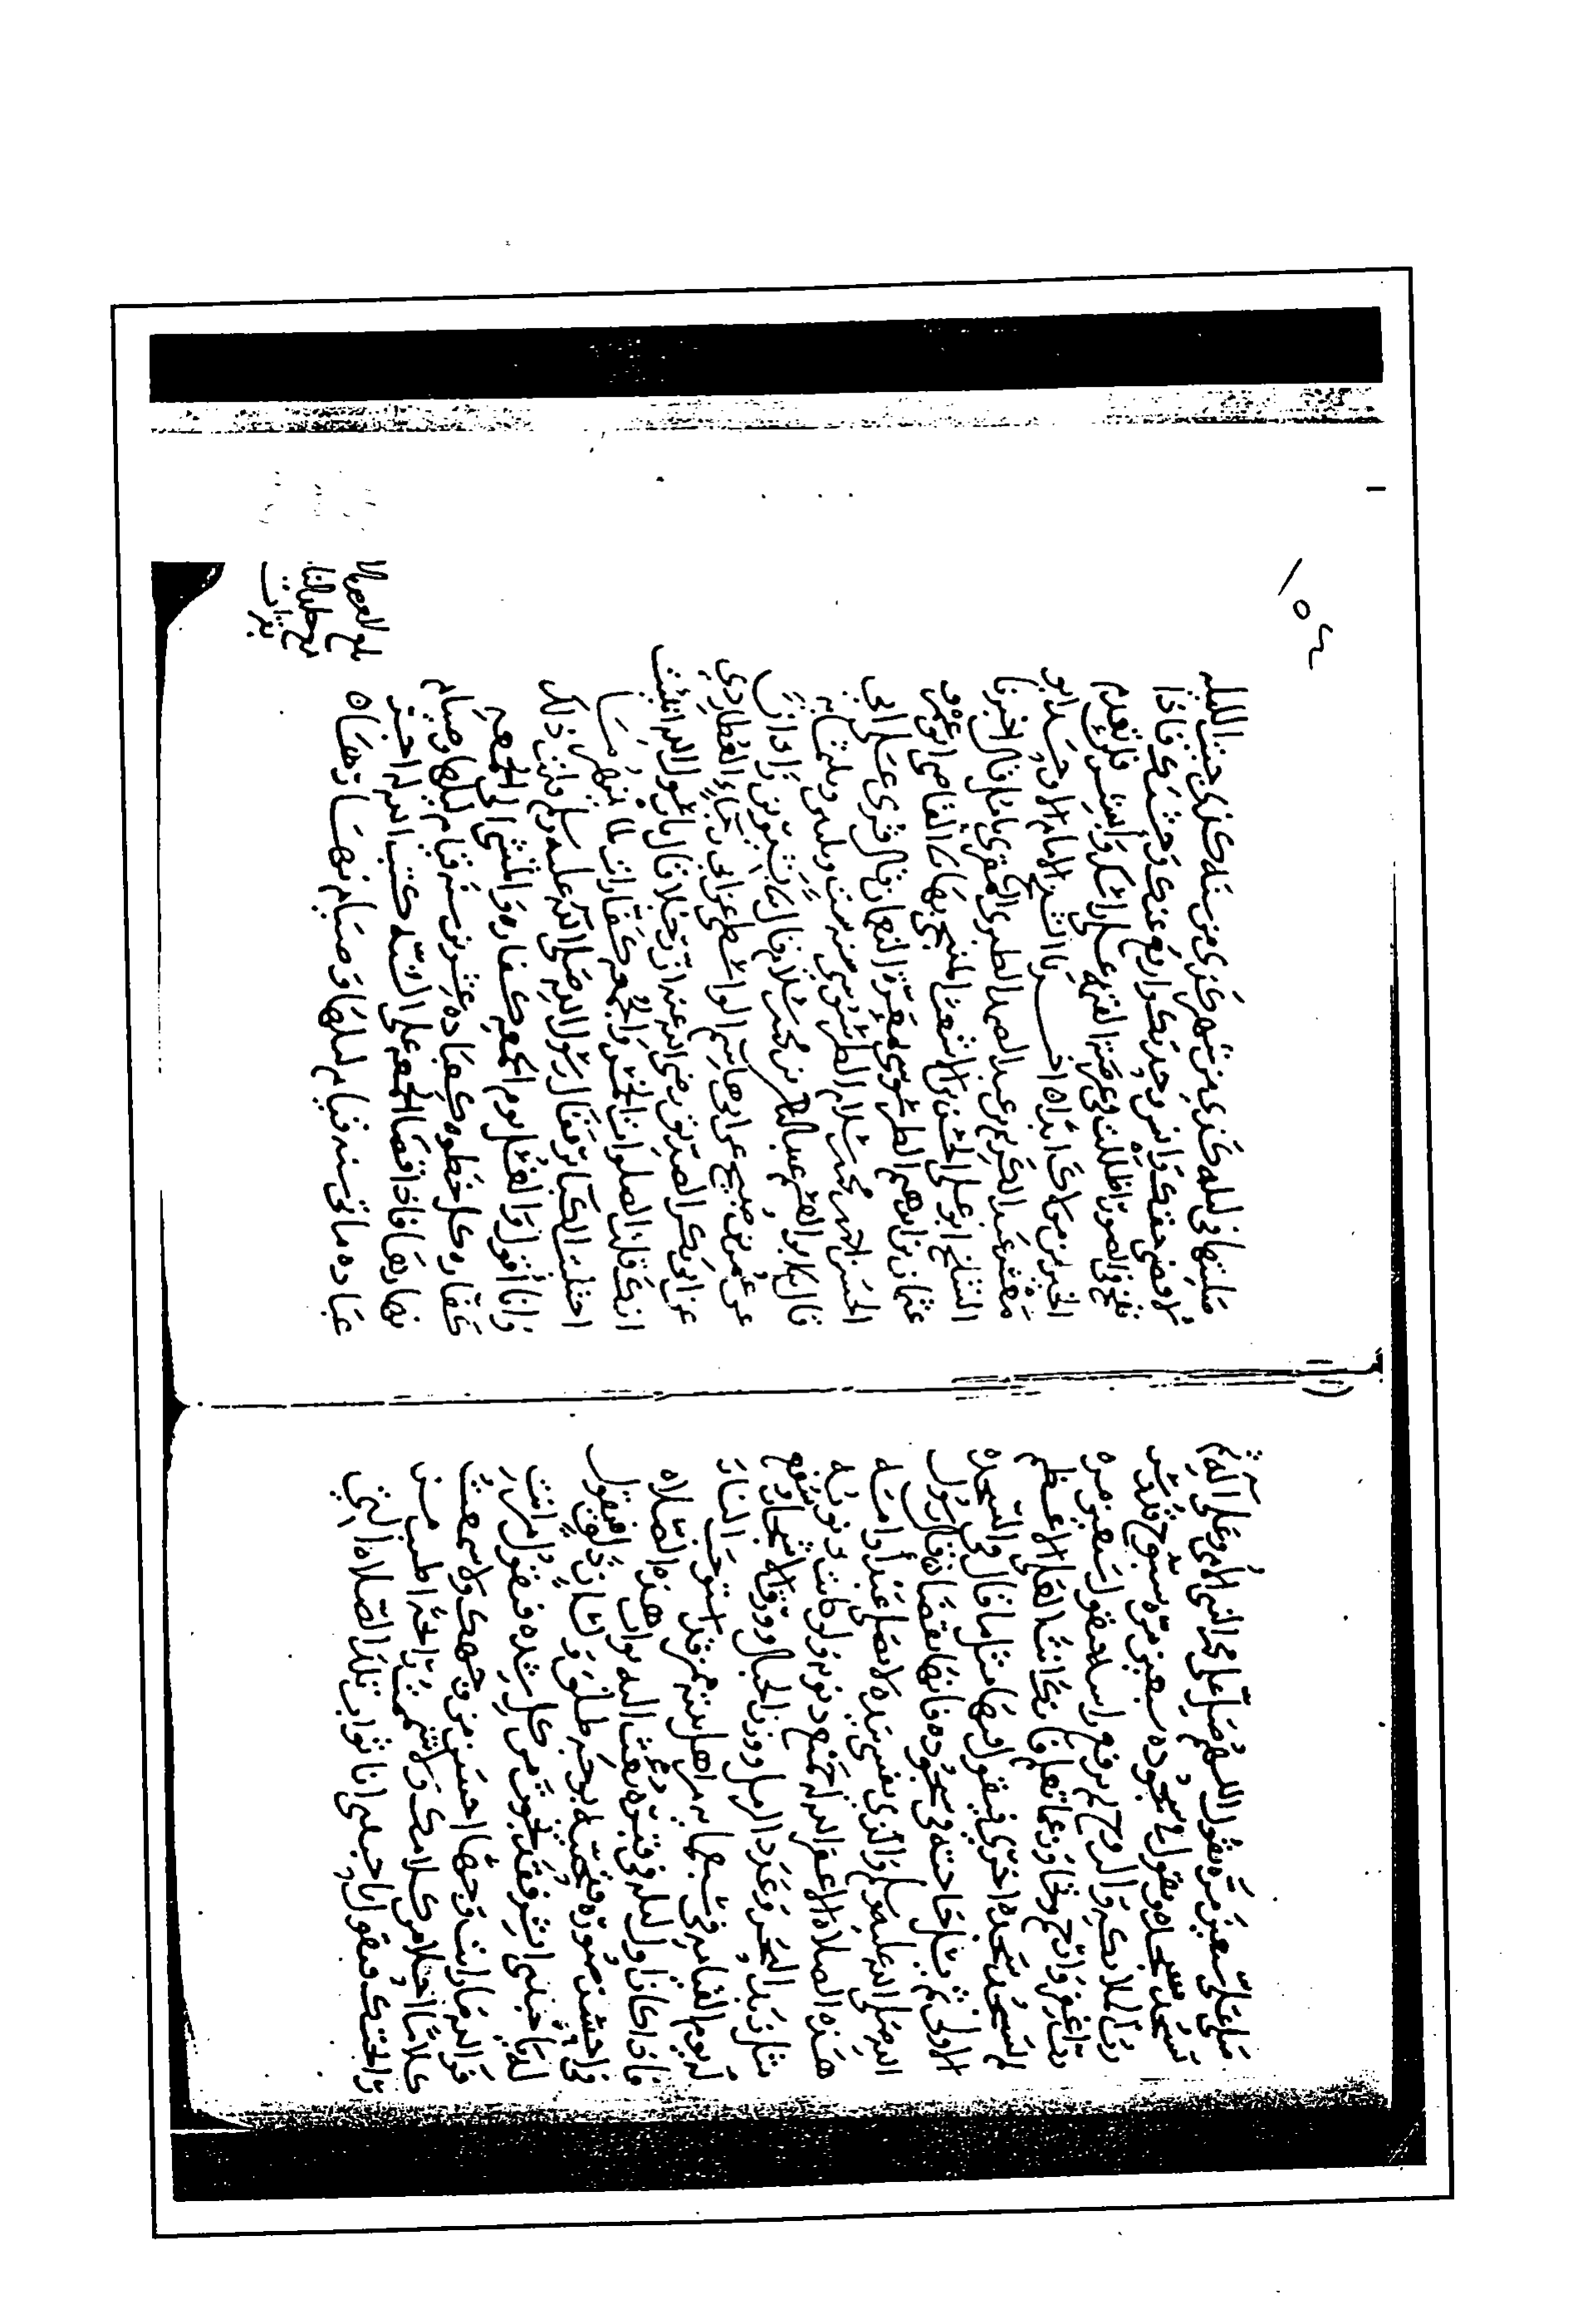 صلى علي سبعين مرة يقول اللهم صل على محمد النبي الامي وعلى آله ثم
يسجد سجدة ويقول في سجوده سبعين مرة سبوح قدوس
رب الملائكة والروح ثم يرفع راسه ويقول سبعين مرة
رب اغفر وارحم وتجاوز عما تعلم فانك انت العلي الاعظم
ثم يسجد سجدة اخرى فيقول فيها مثل ما قال في السجدة
الاولى ثم يسال حاجته في سجوده فانها تقضا قال رسول
الله صلى الله عليه وسلم والذي نفسي بيده لا يصلي عبد او امة
هذه الصلاة الا غفر الله له جميع ذنوبه ولو كانت ذنوبه
مثل زبد البحر وعدد الرمل ووزن الجبال وورق الاشجار ويشفع
له يوم القيامة في سبع مايه من اهل بيته ممن قد استوجب النار
فاذا كان اول ليلة في قبره بعث اليه ثواب هذه الصلاة
في احسن صورة بوجه طلق ولسان ذلق فيقول
له يا حبيبي ابشر فقد نجوت من كل شدة فيقول من انت
فوالله ما رايت وجها احسن من وجهك ولا سمعت
كلاما احلا من كلامك ولا شممت رائحة اطيب من
رائحتك فيقول يا حبيبي انا ثواب تلك الصلاة التي
١٥٤
صليتها في ليلة كذى من شهر كذى من سنة كذى جيت الليلة
لاقضي حقك واونس وحدتك وارفع عنك وحشتك فاذا
نفخ في الصور اظللت في عرصة القيمة على راسك وابشر فلن تعدم
الخير من مولاك ابدا الشيخ الامام الاوحد ابو
معشر عبد الكريم بن عبد الصمد الطبري المقري قال اخبرنا
الشيخ ابو علي الحسن بن الاشعث المنبجي بها القاضي ابو عمرو
عثمان بن ابرهيم الطرسوسي بمعرة النعمان قال قرى على ابي
الحسن محمد بن سلام الطرسوسي سنة ست وثلثين وثلثمايه
قال نا ابو القسم عبد الله بن محمد بن سلام قال
عن عمر بن صبيح عن ابو هاشم الواسطي عن ابي رجاء العطاردي
عن ابو بكر الصديق رضي الله عنه ان رجلا قال يا رسول الله انبيت
انك قلت ان الصلوات الخمس والجمعة كفارات لما بينهن ما
اجتنبت الكباير فقال رسول الله صلى الله عليه وسلم قلت ذلك
وانا اقول والغسل يوم الجمعة كفارة والمشي الى الجمعة
كفارة كل خطوة كعبادة عشرين سنة قيام ليلها وصيام
نهارها فاذا قضا الجمعة على كتب الله له اجر
عبادة مايتي سنة قيام ليلها وصيام نهارها
بلغ